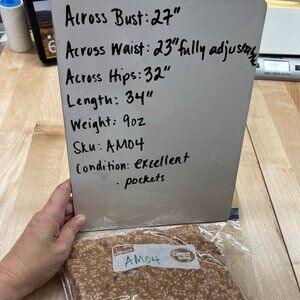 Across Bust: 27"
Across Waist: 23" fully adjustable
Across Hips: 32"
Length: 34"
Weight: 9oz
Sku: AM04
Condition: excellent
· pockets
AM04